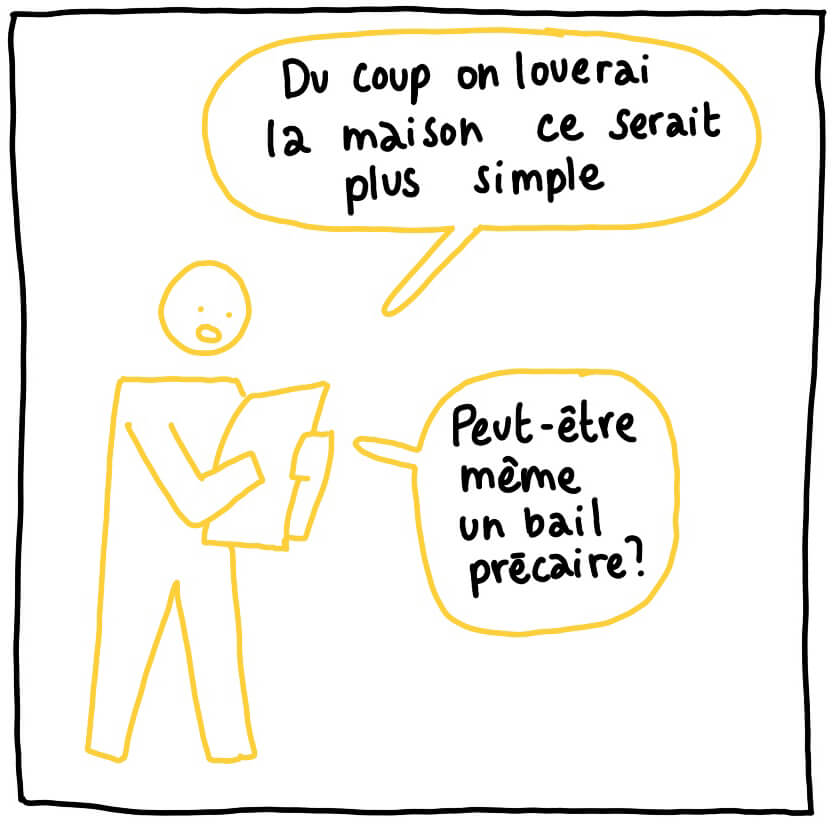 Du coup on louerai
la maison ce serait
plus simple
Peut-être
même
un bail
précaire?